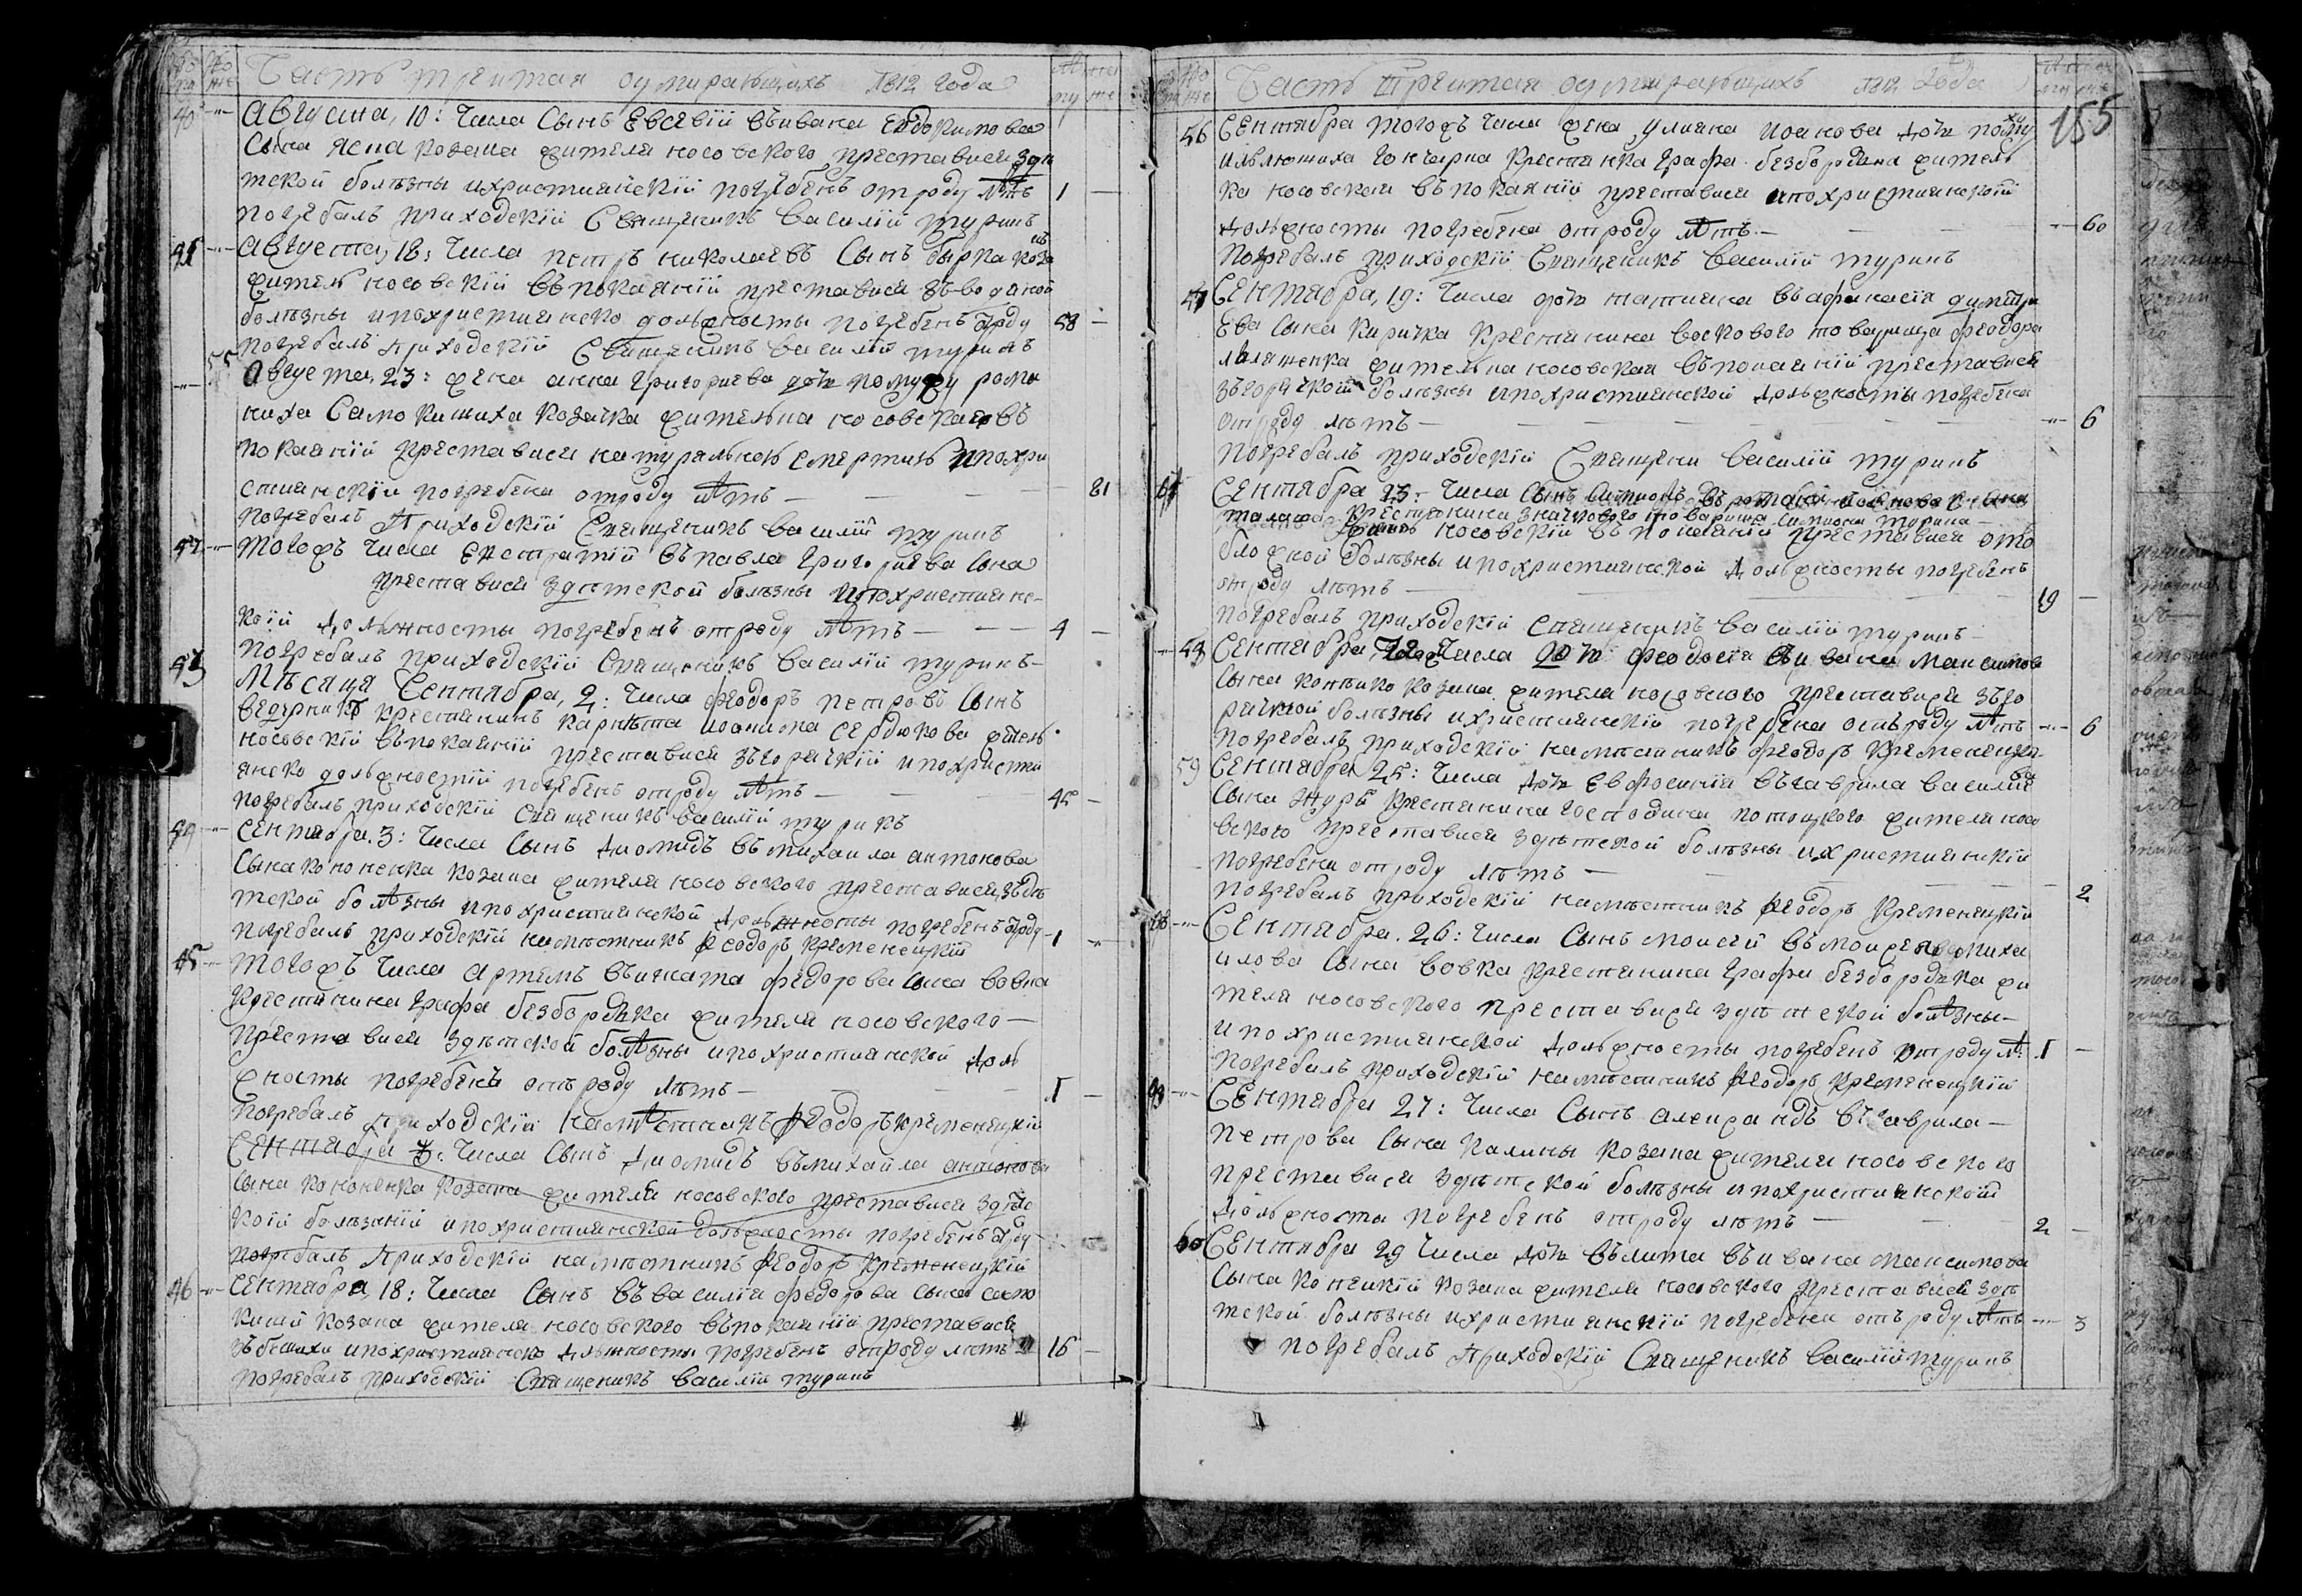 Часть третая оумирающихъ 1812 года
40 Августа, 10: Числа Сынъ Евсевій въ Ивана Евдокимова
Сына Ясна козака жителя носовского преставися здѣ
тской болѣзны и христіянскій погребенъ отроду лѣтъ 1
погребалъ приходскій Священикъ Василій Туринъ
41 Августа, 18: Числа петръ николаевъ Сынъ бырка коза
житель носовскій въ покаяній преставися зъ водяной
болѣзны и похристіянско должносты погребенъ 58
погребалъ приходскій Священикъ Василій Туринъ
55 Августа, 23: жена анна Григориева дочь помужу рома
ниха Самокишиха козачка жителька носовская въ
покаяній преставися натуральною смертию и похри
стиянскіи погребена отроду лѣтъ 81
погребалъ Приходскій Священикъ Василій Туринъ
Тогожъ Числа Евстратій въ павла Григориева Сына
преставися здѣтской болѣзны и похристиянс
кой должносты погребенъ отроду лѣтъ 4
погребалъ приходскій Священикъ Василій Туринъ
43 Мѣсяца Сентября, 2: Числа феодоръ петровъ Сынъ
крестянинъ Сердюкова житель
носовскій въ покаяній преставися зъгорачкій и похристи
янско должностій погребенъ отроду лѣтъ 45
погребалъ приходскій Священикъ Василій Туринъ
Сентября, 3: Числа Сынъ Диомидъ въ михаила антонова
Сына кононенка козака жителя носовского преставися зъдѣ
тской болѣзны и похристиянской должносты погребенъ 1
погребалъ приходскій намѣстникъ феодоръ Кременецкій
45 Тогожъ Числа Артемъ въ игната федорова Сына вовка
Крестянина Графа безбородка жителя носовского
преставися здѣтской болѣзны и похристиянской долж
ности погребенъ отъ роду лѣтъ 1
погребалъ приходскій намѣстникъ феодоръ Кременецкій
Сентября 3: Числа Сынъ Диомидъ въ михаила антонова
Сына кононенка козака жителя носовского преставися здѣтс
кой болѣзній и похристиянской должносты погребенъ
погребалъ приходскій намѣстникъ феодоръ Кременецкій
46 Сентября, 18: Числа Сынъ въ василія федорова Сына само
киши козака жителя носовского въ покаяній преставися
зъ бешихи и похристиянско должносты погребенъ отроду лѣтъ 16
погребалъ приходскій Священикъ Василій Туринъ
Часть Третая оумирающихъ 1812 Года
155
56 Сентября тогожъ числа жена улияна иоанова дочь помужу
Гончарка Крестянка Графа безбородка житель
ка носовская въ покаяній преставися и похристиянской
должносты погребена отроду лѣтъ 60
погребалъ приходскій Священикъ Василій Туринъ
Сентября, 19: Числа дочь татияна въ афанасія димитри
ева Сына Киричка Крестянина воскового товарища феодора
жителька носовская въ покаяній преставися
зъгорячкой болѣзны и похристиянской должносты погребена
отроду лѣтъ 6
погребалъ приходскій Священи Василій Туринъ
Сентября 23: Числа Сынъ
Крестянина значкового товариша Симиона Турина
носовскій въ покаяній преставися отъ
болѣзны и похристиянской должносты погребенъ
отроду лѣтъ 19
погребалъ приходскій Священикъ Василій Туринъ
Сентября, Числа дочь феодосія въ ивана максимова
Сына козака жителя носовского преставися зъго
рячкой болѣзны и християнскій погребена отъ роду лѣтъ 6
погребалъ приходскій намѣстникъ феодоръ Кременецкій
59 Сентября 25: Числа дочь Евфросинія въ гаврила василие
ва Сына журы Крестянина Господина потоцкого жителя носо
вского преставися здѣтской болѣзны и християнскій
погребена отроду лѣтъ 2
погребалъ приходскій намѣстникъ феодоръ Кременецкій
Сентября, 26: Числа Сынъ моисей въ миха
илова Сына вовка Крестянина Графа безбородка жи
теля носовского преставися здѣтской болѣзны
и похристиянской должносты погребенъ отроду лѣ. 1
погребалъ приходскій намѣстникъ феодоръ Кременецкій
Сентября 27: Числа Сынъ александъ въ гаврила
петрова Сына калины козака жителя носовского
преставися здѣтской болѣзны и похристиянской
должноста погребенъ отроду лѣтъ 2
60 Сентября 29 Числа дочь въ ивана максимова
Сына козака жителя носовского преставися здѣ
тской болѣзны и християнскій погребена отъ роду лѣтъ 3
погребалъ Приходскій Священикъ Василій Туринъ